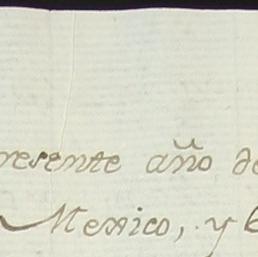 resente año de
Mexico, y